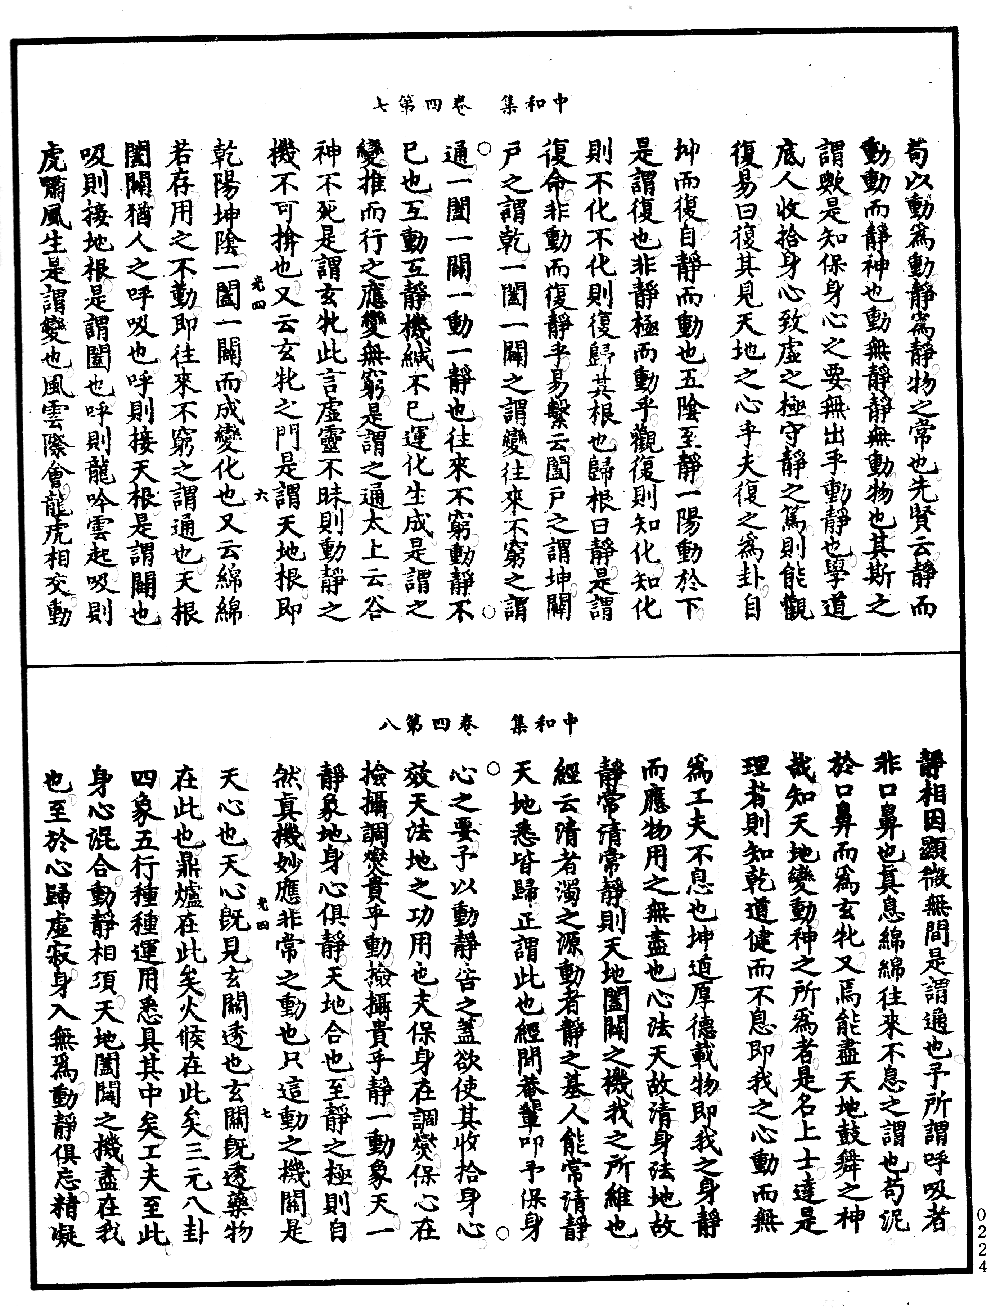 中和集　卷四第七
苟以動為動靜為靜物之常也先賢云靜而
動動而靜神也動無靜靜無動物也其斯之
謂歟是知保身心之要無出乎動靜也學道
底人收拾身心致虛之極守靜之篤則能觀
復易曰復其見天地之心乎夫復之為卦自
坤而復自靜而動也五陰至靜一陽動於下
是謂復也非靜極而動乎觀復則知化知化
則不化不化則復歸其根也歸根曰靜是謂
復命非動而復靜乎易繫云闔戶之謂坤闢
戶之謂乾一闔一闢之謂變往來不窮之謂
通一闔一闢一動一靜也往來不窮動靜不
已也互動互靜機緘不已運化生成是謂之
變推而行之應變無窮是謂之通太上云谷
神不死是謂玄牝此言虛靈不昧則動靜之
機不可揜也又云玄牝之門是謂天地根即
光四　六
乾陽坤陰一闔一闢而成變化也又云綿綿
若存用之不勤即往來不窮之謂通也天根
闔闢猶人之呼吸也呼則接天根是謂闢也
吸則接地根是謂闔也呼則龍吟雲起吸則
虎嘯風生是謂變也風雲際會龍虎相交動
中和集　卷四第八
靜相因顯微無間是謂通也予所謂呼吸者
非口鼻也真息綿綿往來不息之謂也苟泥
於口鼻而為玄牝又焉能盡天地鼓舜之神
哉知天地變動神之所為者是名上士達是
理者則知乾道健而不息即我之心動而無
為工夫不息也坤道厚德載物即我之身靜
而應物用之無盡也心法天故清身法地故
靜常清常靜則天地闔闢之機我之所維也
經云清者濁之源動者靜之基人能常清靜
天地悉皆歸正謂此也經閒菴輩叩予保身
心之要予以動靜告之蓋欲使其收拾身心
效天法地之功用也夫保身在調燮保心在
撿攝調燮貴乎動撿攝貴乎靜一動象天一
靜象地身心俱靜天地合也至靜之極則自
然真機妙應非常之動也只這動之機關是
光四　七
天心也天心既見玄關透也玄關既透藥物
在此也鼎爐在此矣火候在此矣三元八卦
四象五行種種運用悉具其中矣工夫至此
身心混合動靜相須天地闔闢之機盡在我
也至於心歸虛寂身入無為動靜俱忘精凝
0224